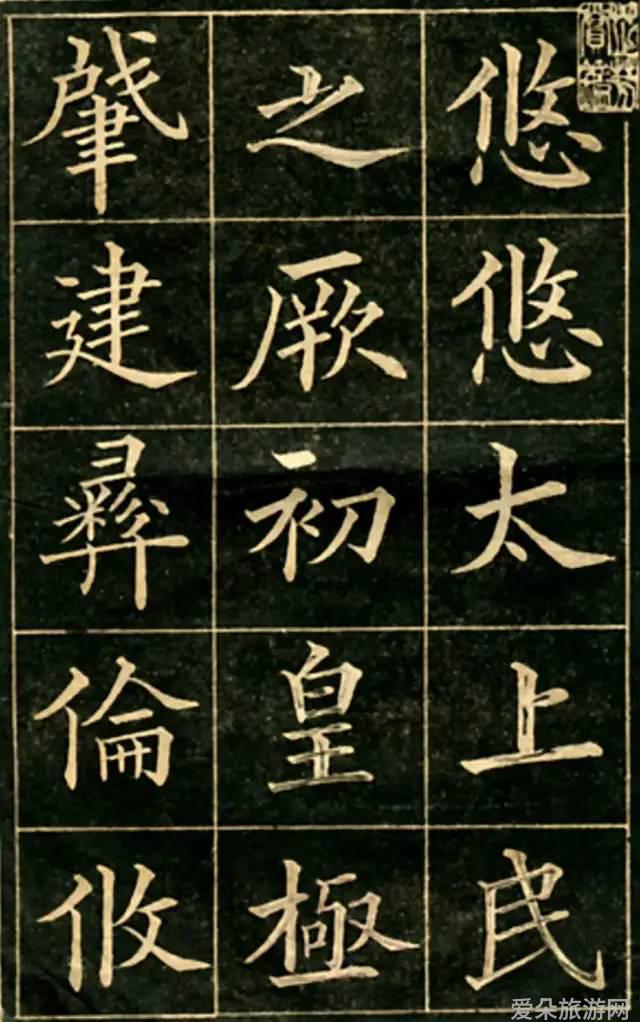 悠悠太上民
之厥初皇極
肈建彝倫攸
爱朵旅游网